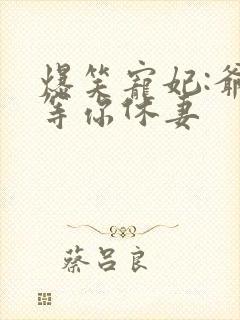 爆笑寵妃:爺
等你休妻
蔡呂良